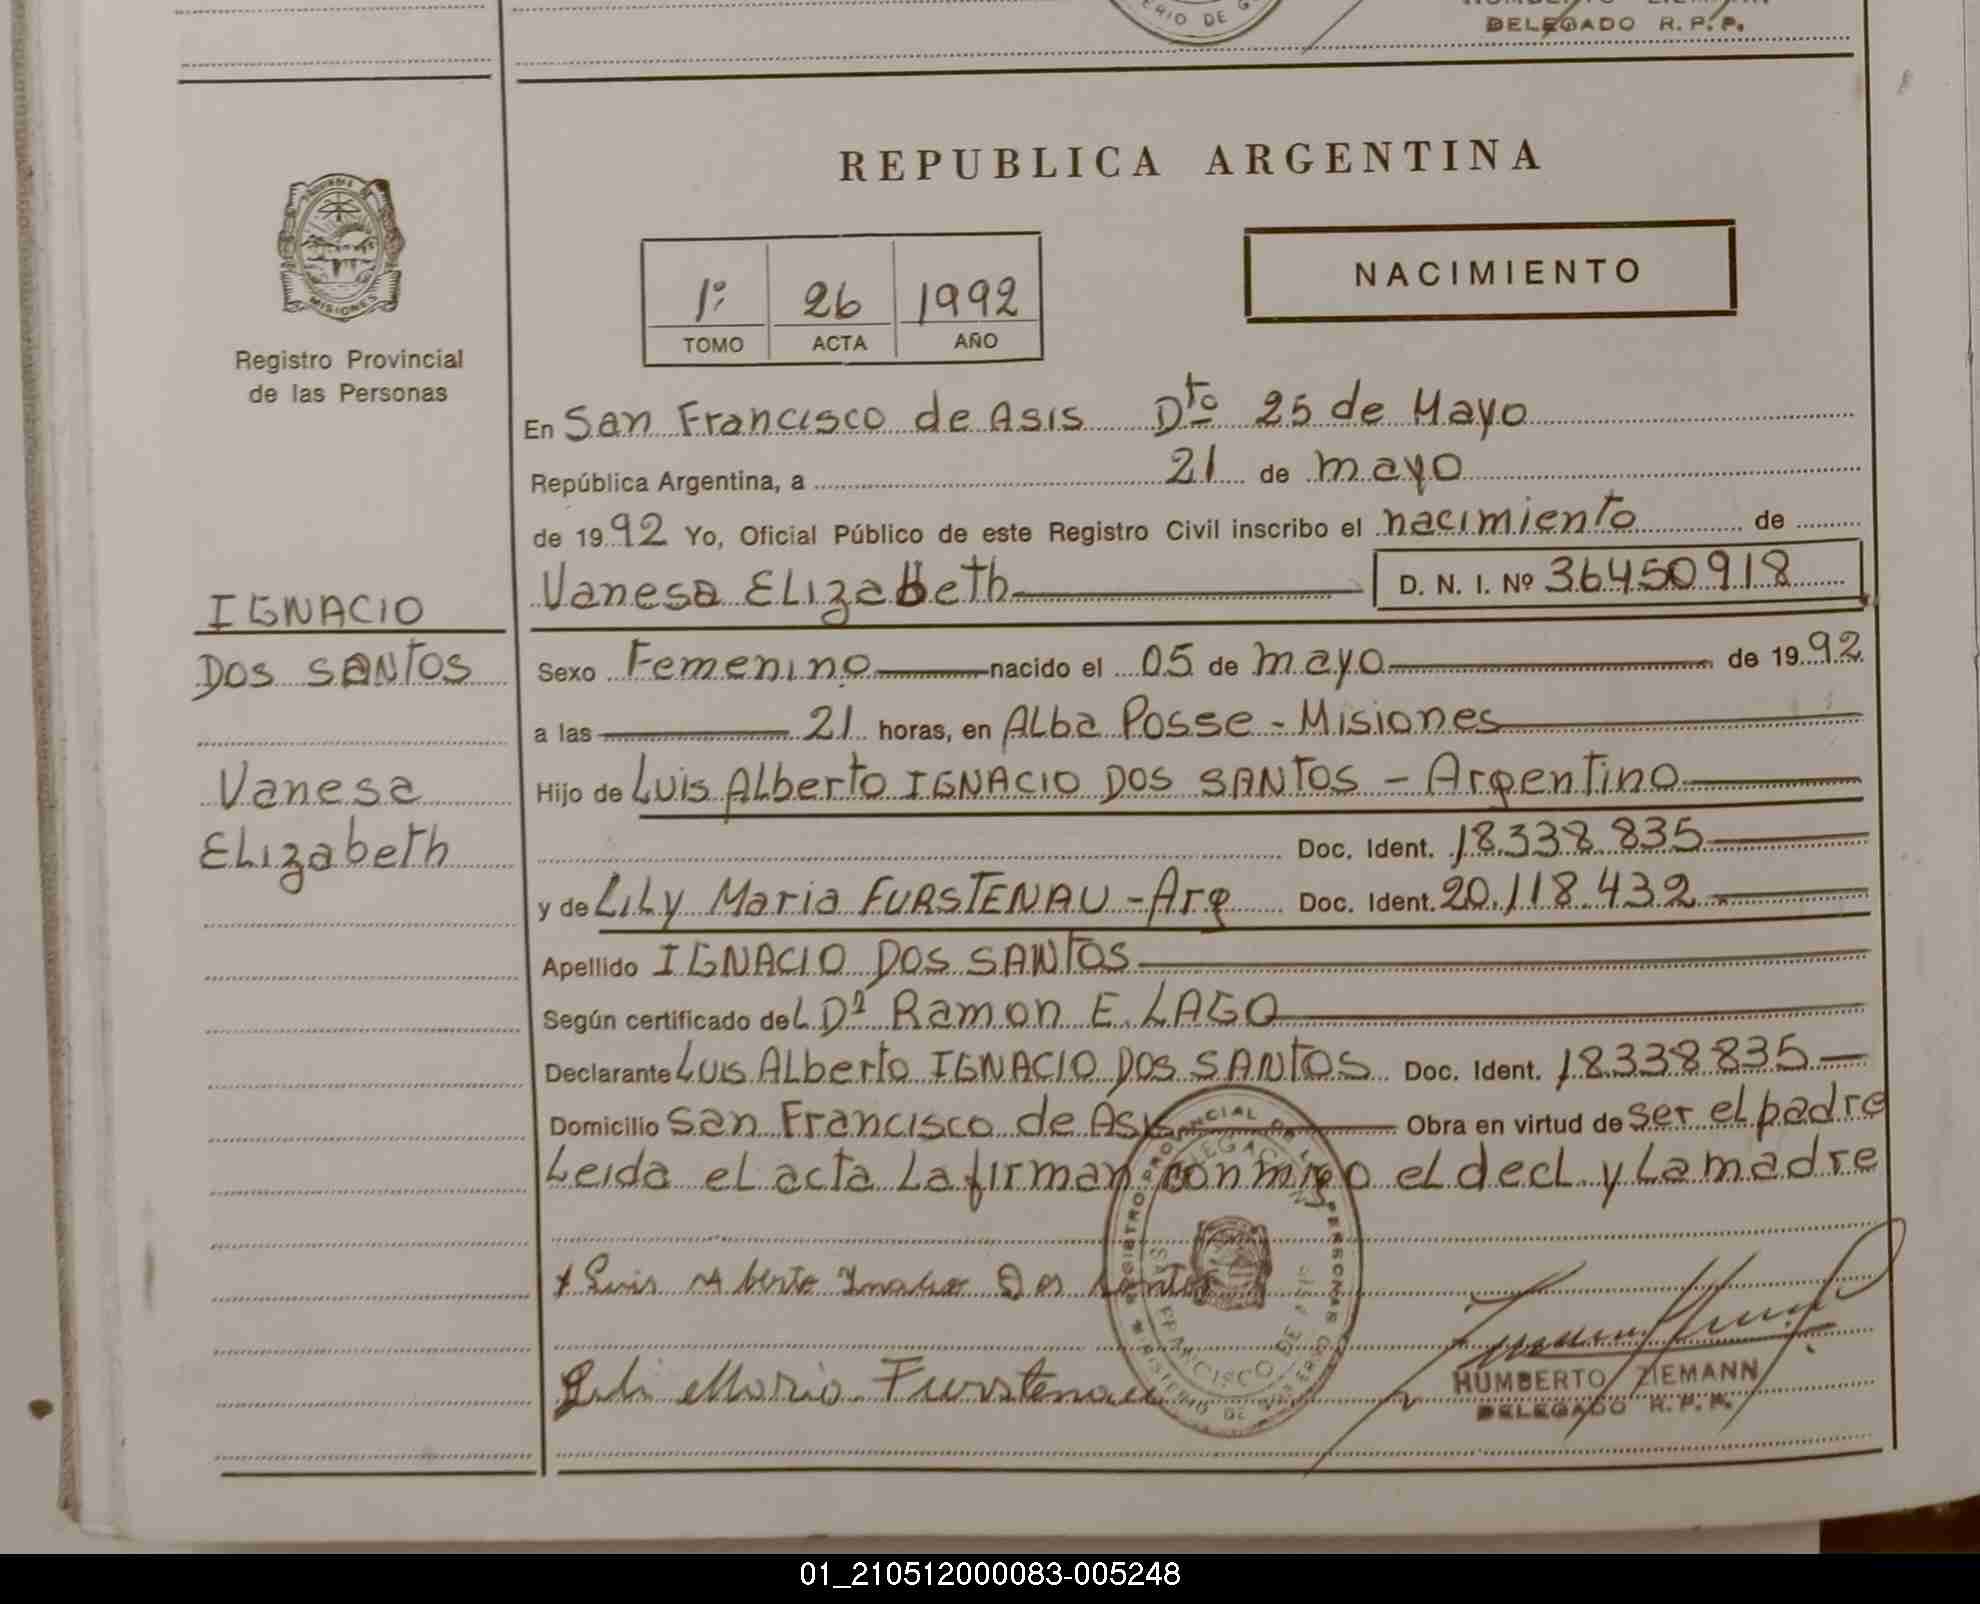 DELEGADO R. P. P.
REPUBLICA ARGENTINA
NACIMIENTO
1º 26 1992
TOMO ACTA AÑO
MISIONES
Registro Provincial
de las Personas
En San Francisco de Asis Dto 25 de Mayo
República Argentina, a 21 de mayo
de 1992 Yo, Oficial Público de este Registro Civil inscribo el nacimiento de
Vanesa Elizabeth D. N. I. Nº 36450918
IGNACIO
DOS SANTOS
Vanesa
Elizabeth
Sexo Femenino nacido el 05 de mayo de 1992
a las 21 horas, en Alba Posse - Misiones
Hijo de Luis Alberto IGNACIO DOS SANTOS - Argentino
Doc. Ident. 18.338.835
y de Lily Maria FURSTENAU - Arg Doc. Ident. 20.118.432
Apellido IGNACIO DOS SANTOS
Según certificado del Dr Ramon E. LAGO
Declarante Luis Alberto IGNACIO DOS SANTOS Doc. Ident. 18338835
Domicilio San Francisco de Asis Obra en virtud de ser el padre
Leida el acta La firman conmigo el decl. y La madre
Luis Alberto Ignacio Dos Santos
Lili Maria Furstenau
REGISTRO PROVINCIAL DE LAS PERSONAS
DELEGACION
SAN FRANCISCO DE ASIS
MINISTERIO DE GOBIERNO
HUMBERTO ZIEMANN
DELEGADO R. P. P.
01_210512000083-005248